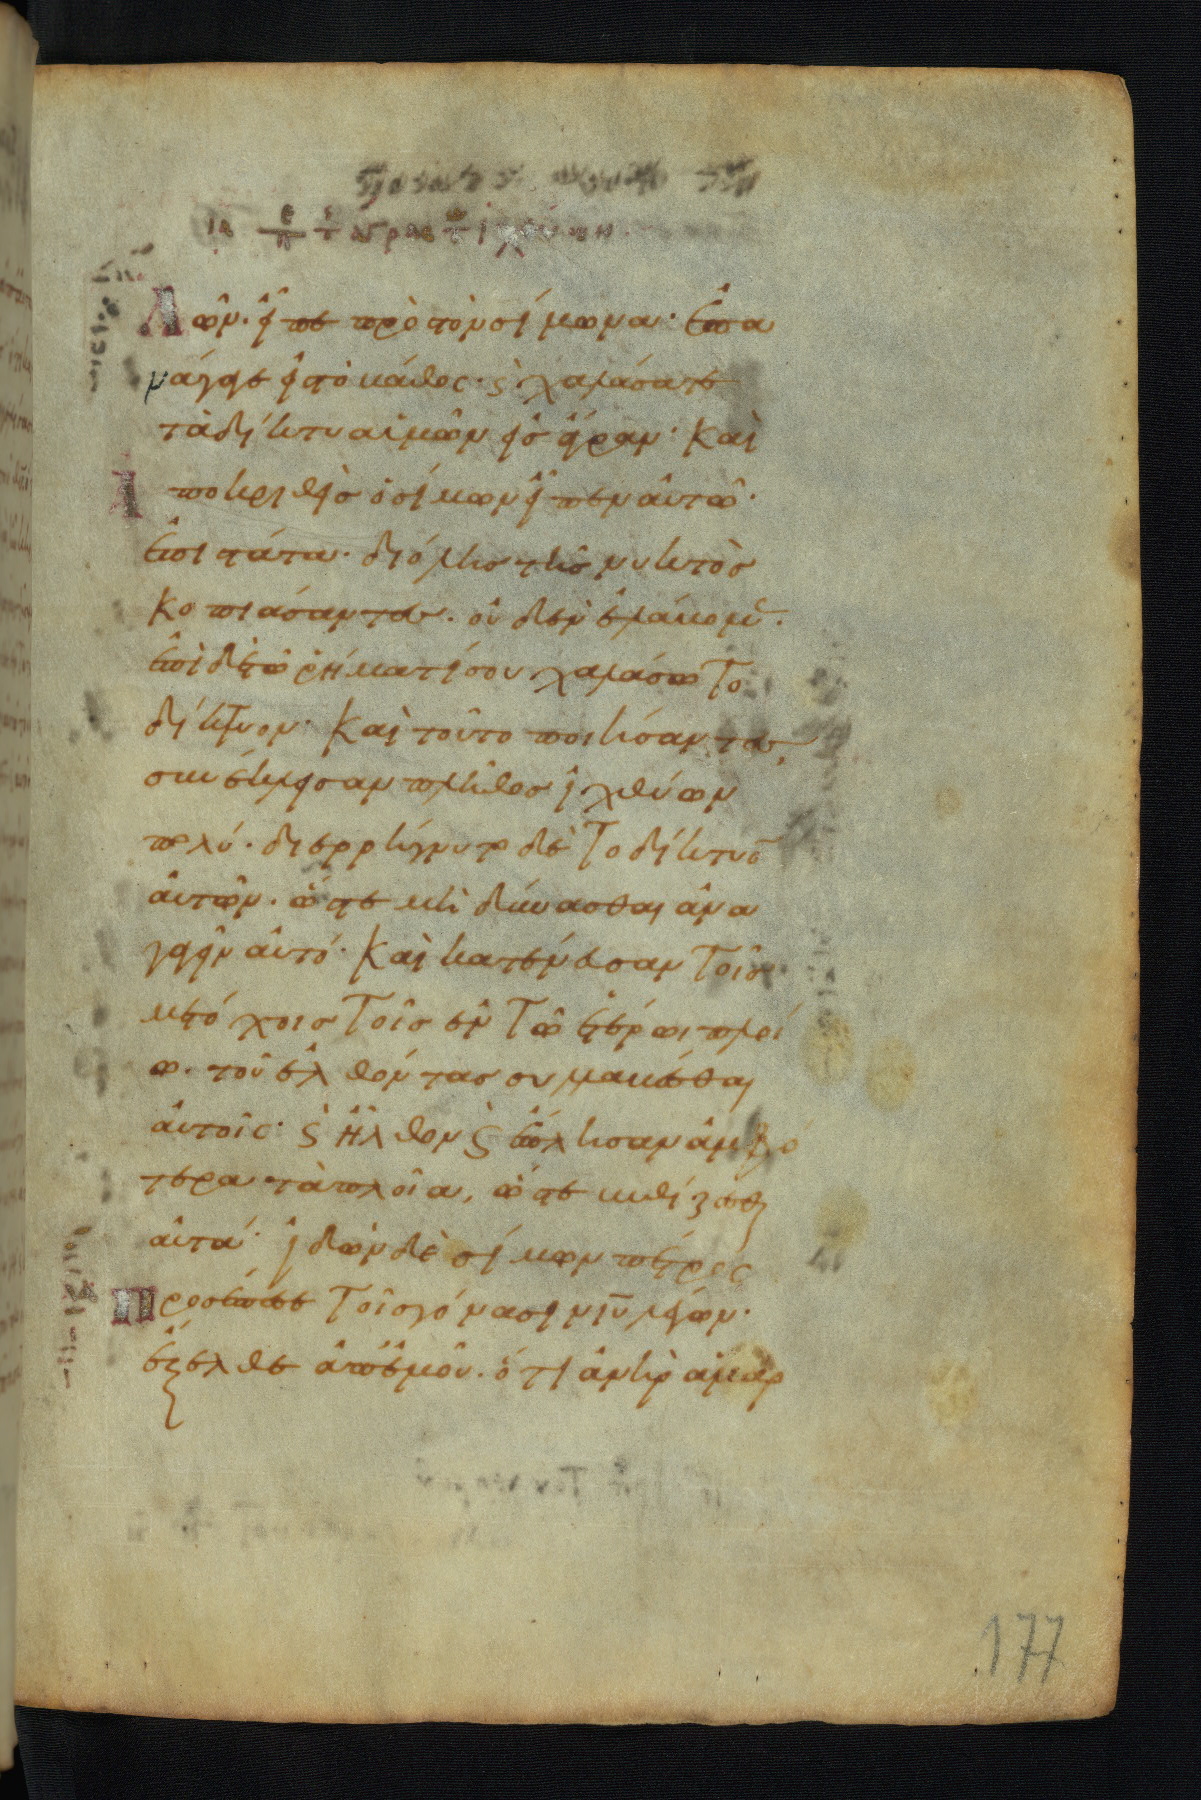 Λῶν· εἶπε πρὸς τὸν σίμωνα· ἐπα
νάγαγε εἰς τὸ βάθος· ϛ χαλάσατε
τὰ δίκτυα ὑμῶν εἰς ἄγραν· Καὶ
Ἀποκριθεὶς ὁ σίμων εἶπεν αὐτῶ·
ἐπιστάτα· δι ὅλης τῆς νυκτὸς
κοπιάσαντες· οὐδὲν ἐλάβομεν·
ἐπὶ δὲ τῶ ῥήματί σου χαλάσω το
δίκτυον· Καὶ τοῦτο ποιήσαντες,
συνέκλεισαν πλῆθος ἰχθύων
πολύ· διερρήγνυτο δὲ το δίκτυο̅
αὐτῶν· ὥστε μὴ δύνασθαι ἀνα
γαγεῖν αὐτό· Καὶ κατένευσαν τοῖς
μετόχοις τοῖς ἐν τῶ ἑτέρωι πλοί
ω· τοῦ ἐλθόντας συλλαβέσθαι
αὐτοῖς· ϛ ἦλθον ϛ ἔπλησαν ἀμφό
τερα τὰ πλοῖα, ὥστε βυθίζεσθαι
αὐτά· ἰδὼν δὲ σίμων πέτρος
Προσέπεσε τοῖς γόνασιν ι̅υ̅ λέγων·
ἔξελθε ἀπ ἐμοῦ· ὅτι ἀνὴρ ἁμαρ
177